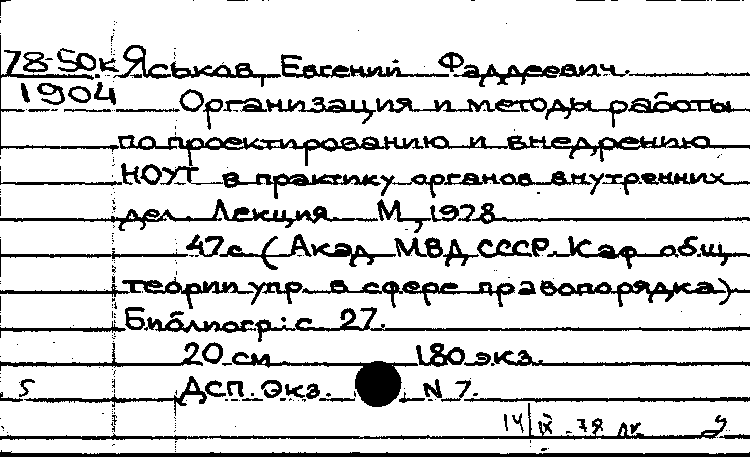 78-50к Яськов, Евгений Фаддеевич.
1904 Организация и методы работы
по проектированию и внедрению
НОУТ в практику органов внутренних
дел. Лекция М., 1978
47с. (Акад. МВД СССР. Каф. общ.
теории упр. в сфере правопорядка)
Библиогр.: с. 27.
20 см 180 экз.
5 ДСП. Экз. N 7.
14/IX-78